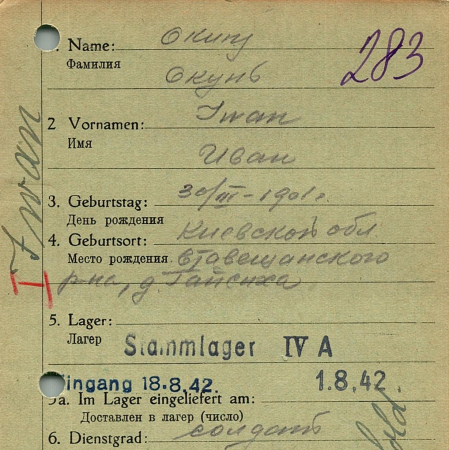 1. Name: Окипу
283
Фамилия
Окунь
2 Vornamen: Iwan
Имя
Иван
Iwan
3. Geburtstag: 30/III-1901 г.
День рождения
4. Geburtsort: Киевской обл
Место рождения Ставещанского
р-на, д. Гайсиха
5. Lager:
Лагер Stammlager IV A
Eingang 18.8.42. 1.8.42.
5a. Im Lager eingeliefert am:
Доставлен в лагер (число)
6. Dienstgrad: солдат